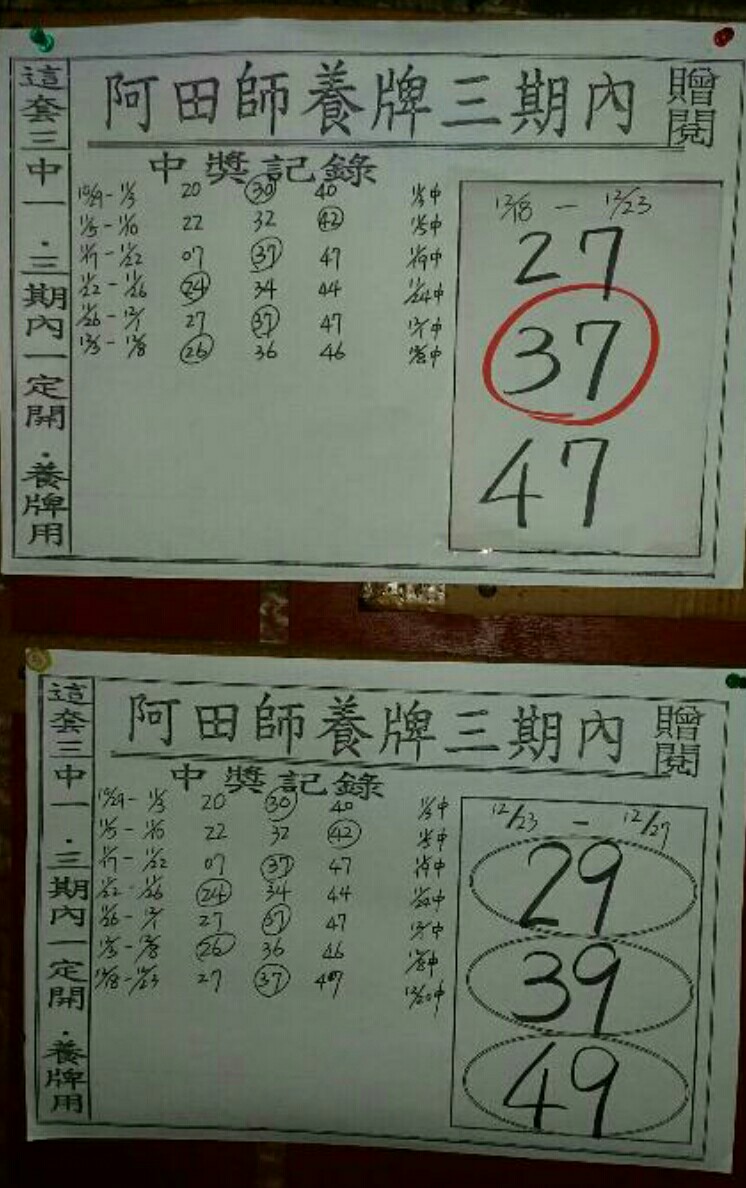 這套三中一．三期內一定開．養牌用
阿田師養牌三期內
贈閱
中獎記錄
10/29 - 11/3 20 30 40 11/3中
11/5 - 11/10 22 32 42 11/5中
11/17 - 11/22 07 37 47 11/19中
11/22 - 11/26 24 34 44 11/24中
11/26 - 12/1 27 37 47 12/1中
12/3 - 12/8 26 36 46
12/18 - 12/23
27
37
47
這套三中一．三期內一定開．養牌用
阿田師養牌三期內
贈閱
中獎記錄
10/29 - 11/3 20 30 40 11/3中
11/5 - 11/10 22 32 42 11/5中
11/17 - 11/22 07 37 47 11/19中
11/22 - 11/26 24 34 44 11/24中
11/26 - 12/1 27 37 47 12/1中
12/3 - 12/8 26 36 46
12/18 - 12/23 27 37 47 12/20中
12/23 - 12/27
29
39
49